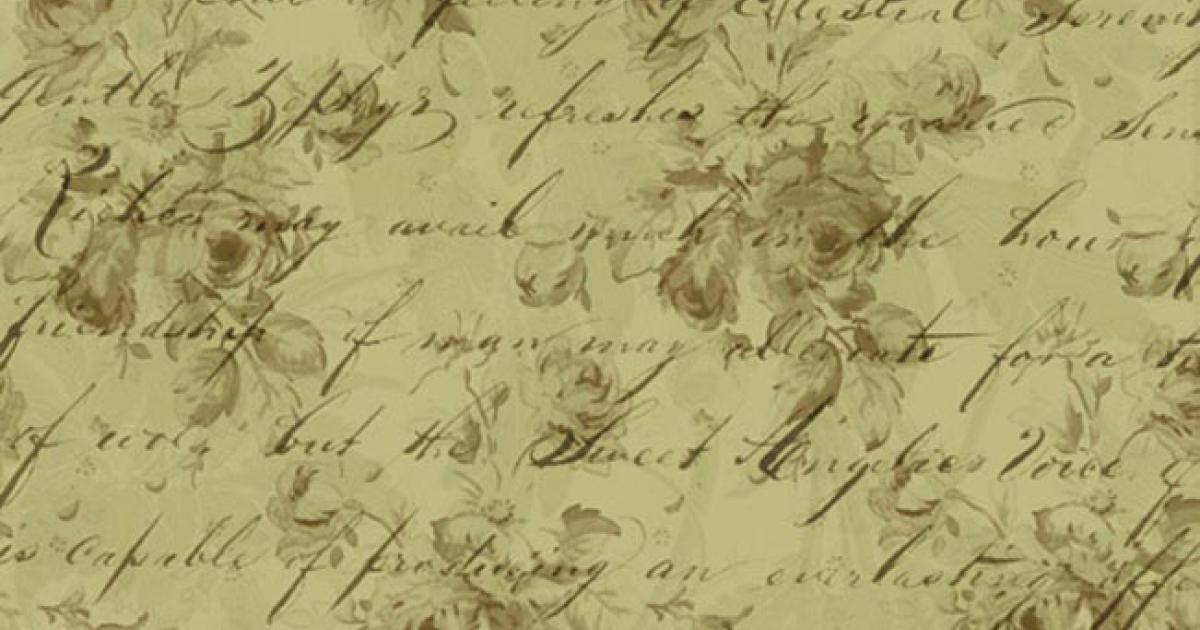 feeling of Celestial Sereni
gentle Zephyr refreshes the wearied Sen
Riches may avail much in the hour
friendship of man may alleviate for a
of woe, but the Sweet Angelic Voice
is capable of producing an everlasting effe